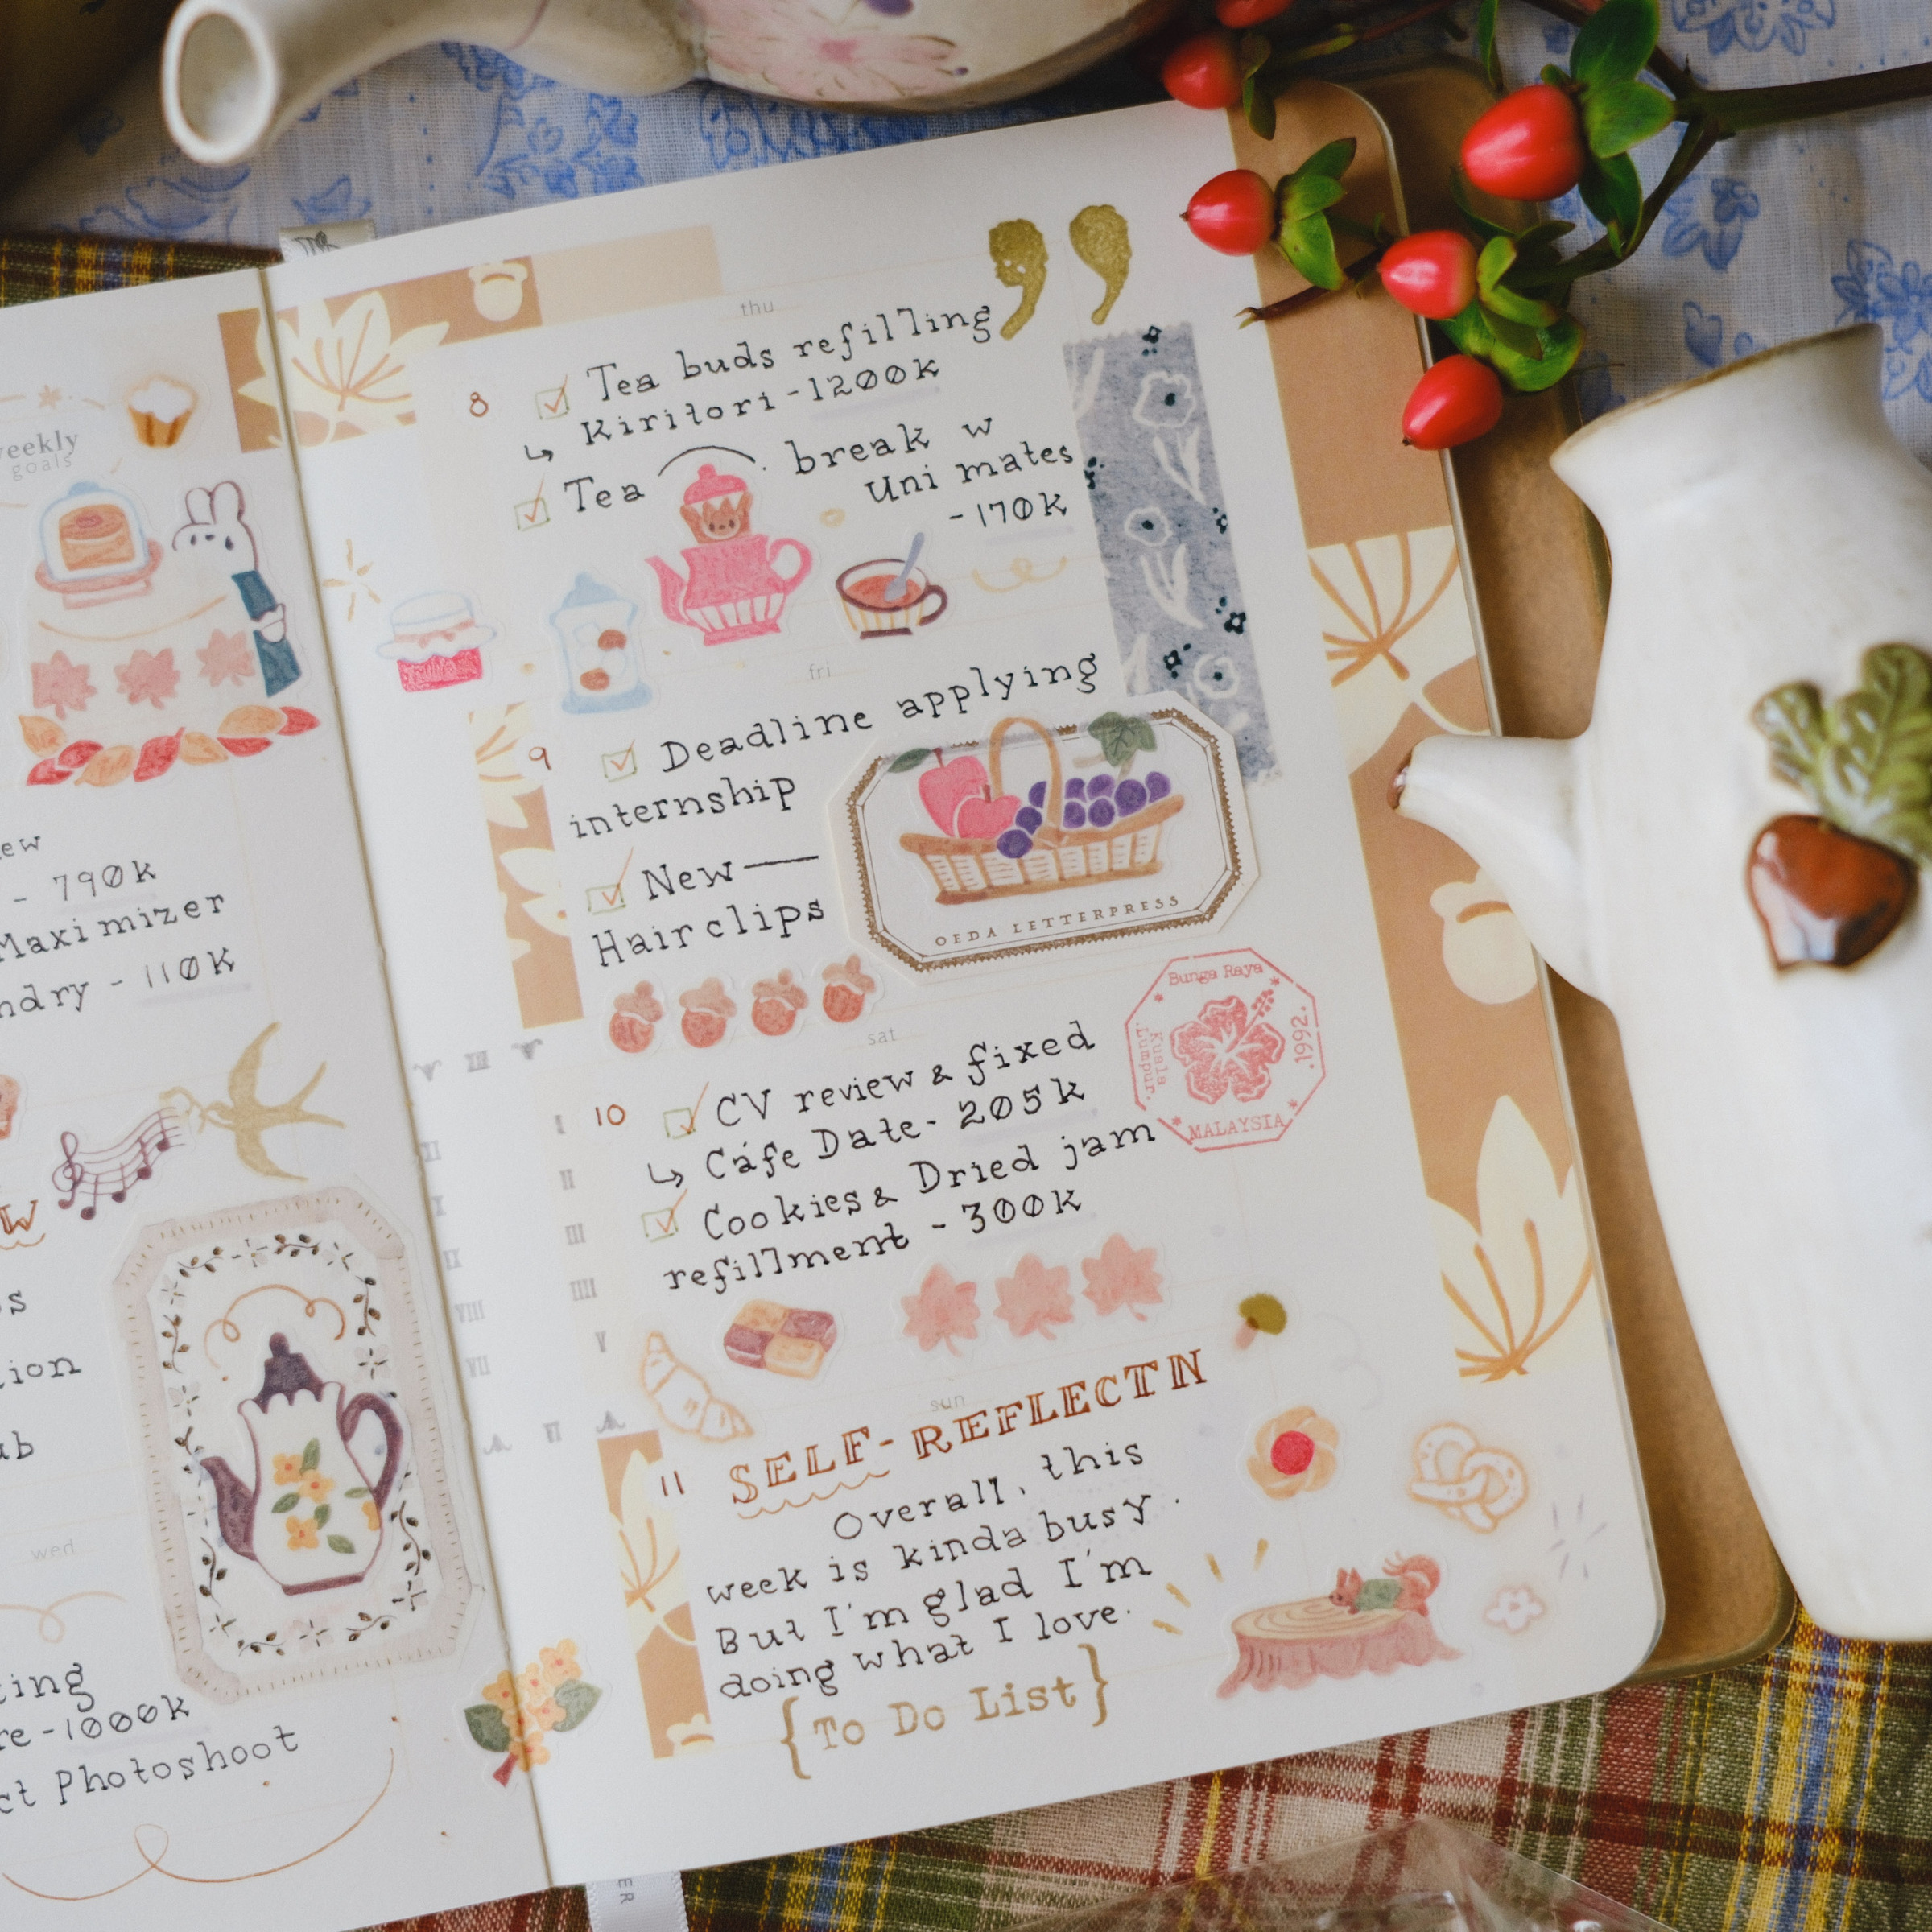 weekly
goals
- 790k
Maximizer
- 110k
wed
-1000k
Photoshoot
thu
8
Tea buds refilling
↳ Kiritori - 1200k
Tea break w
Uni mates
- 170k
fri
9
Deadline applying
internship
New —
Hair clips
OEDA LETTERPRESS
sat
10
CV review & fixed
↳ Cáfe Date - 205k
Cookies & Dried jam
refillment - 300k
Bunga Raya
.1992.
Kuala
Lumpur.
MALAYSIA
sun
11
SELF-REFLECTN
Overall, this
week is kinda busy.
But I'm glad I'm
doing what I love.
{To Do List}